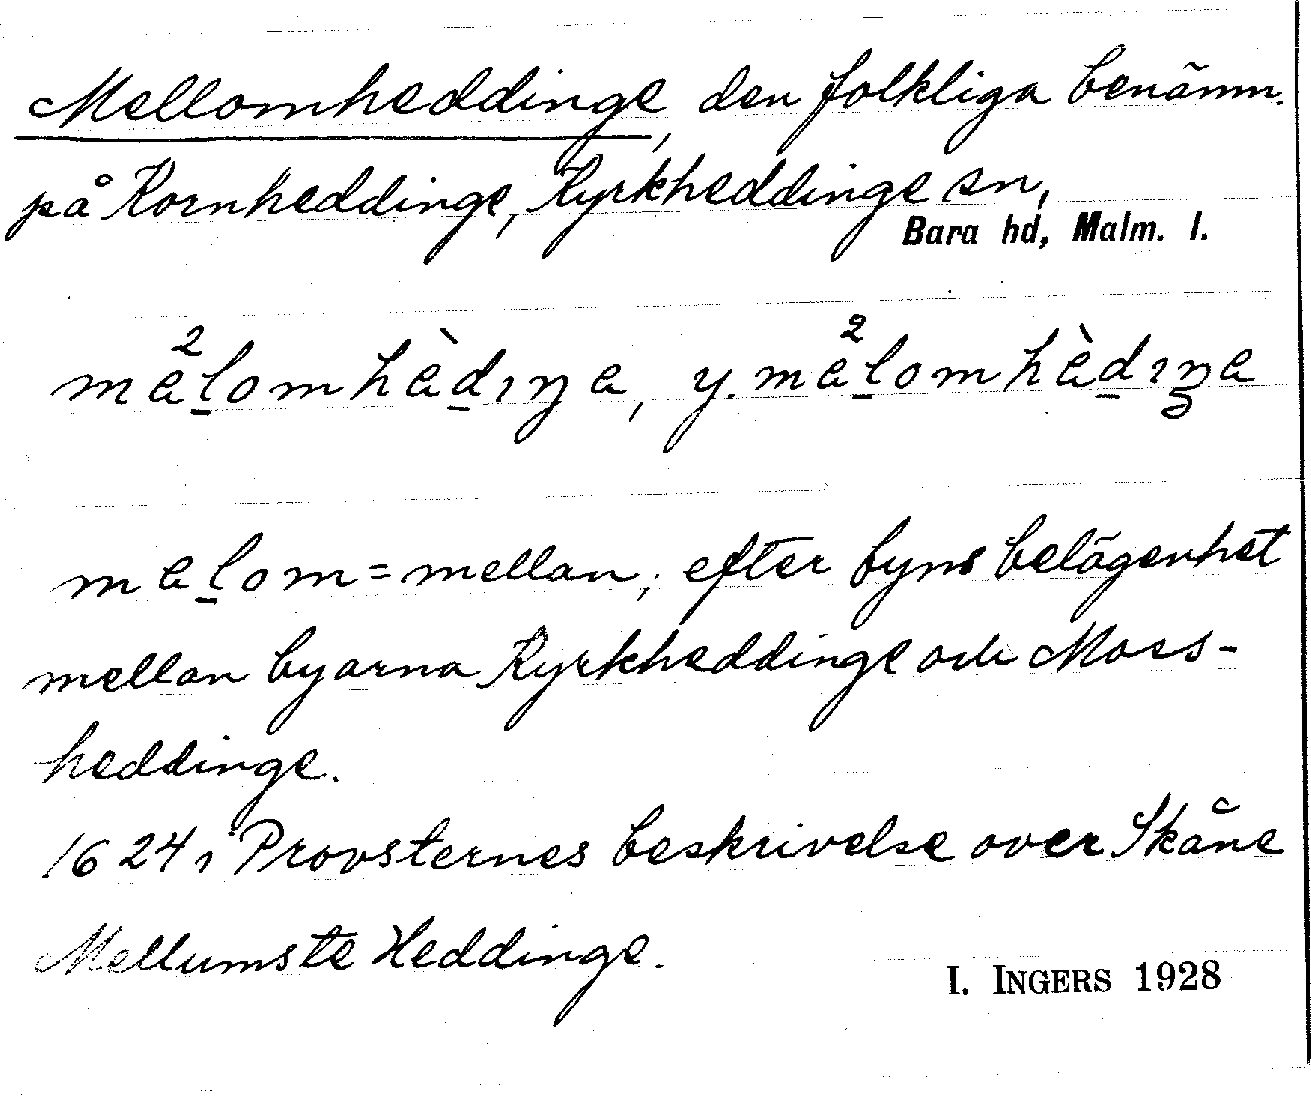 Mellomheddinge, den folkliga benämn.
på Kornheddinge, Kyrkheddinge sn,
Bara hd, Malm. l.
ma²l̲omhàd̲ıŋa, y. ma²l̲omhàd̲ıŋa
mal̲om = mellan, efter byns belägenhet
mellan byarna Kyrkheddinge och Moss-
heddinge.
1624 i Provsternes beskrivelse over Skåne
Mellumste Heddinge.
I. INGERS 1928